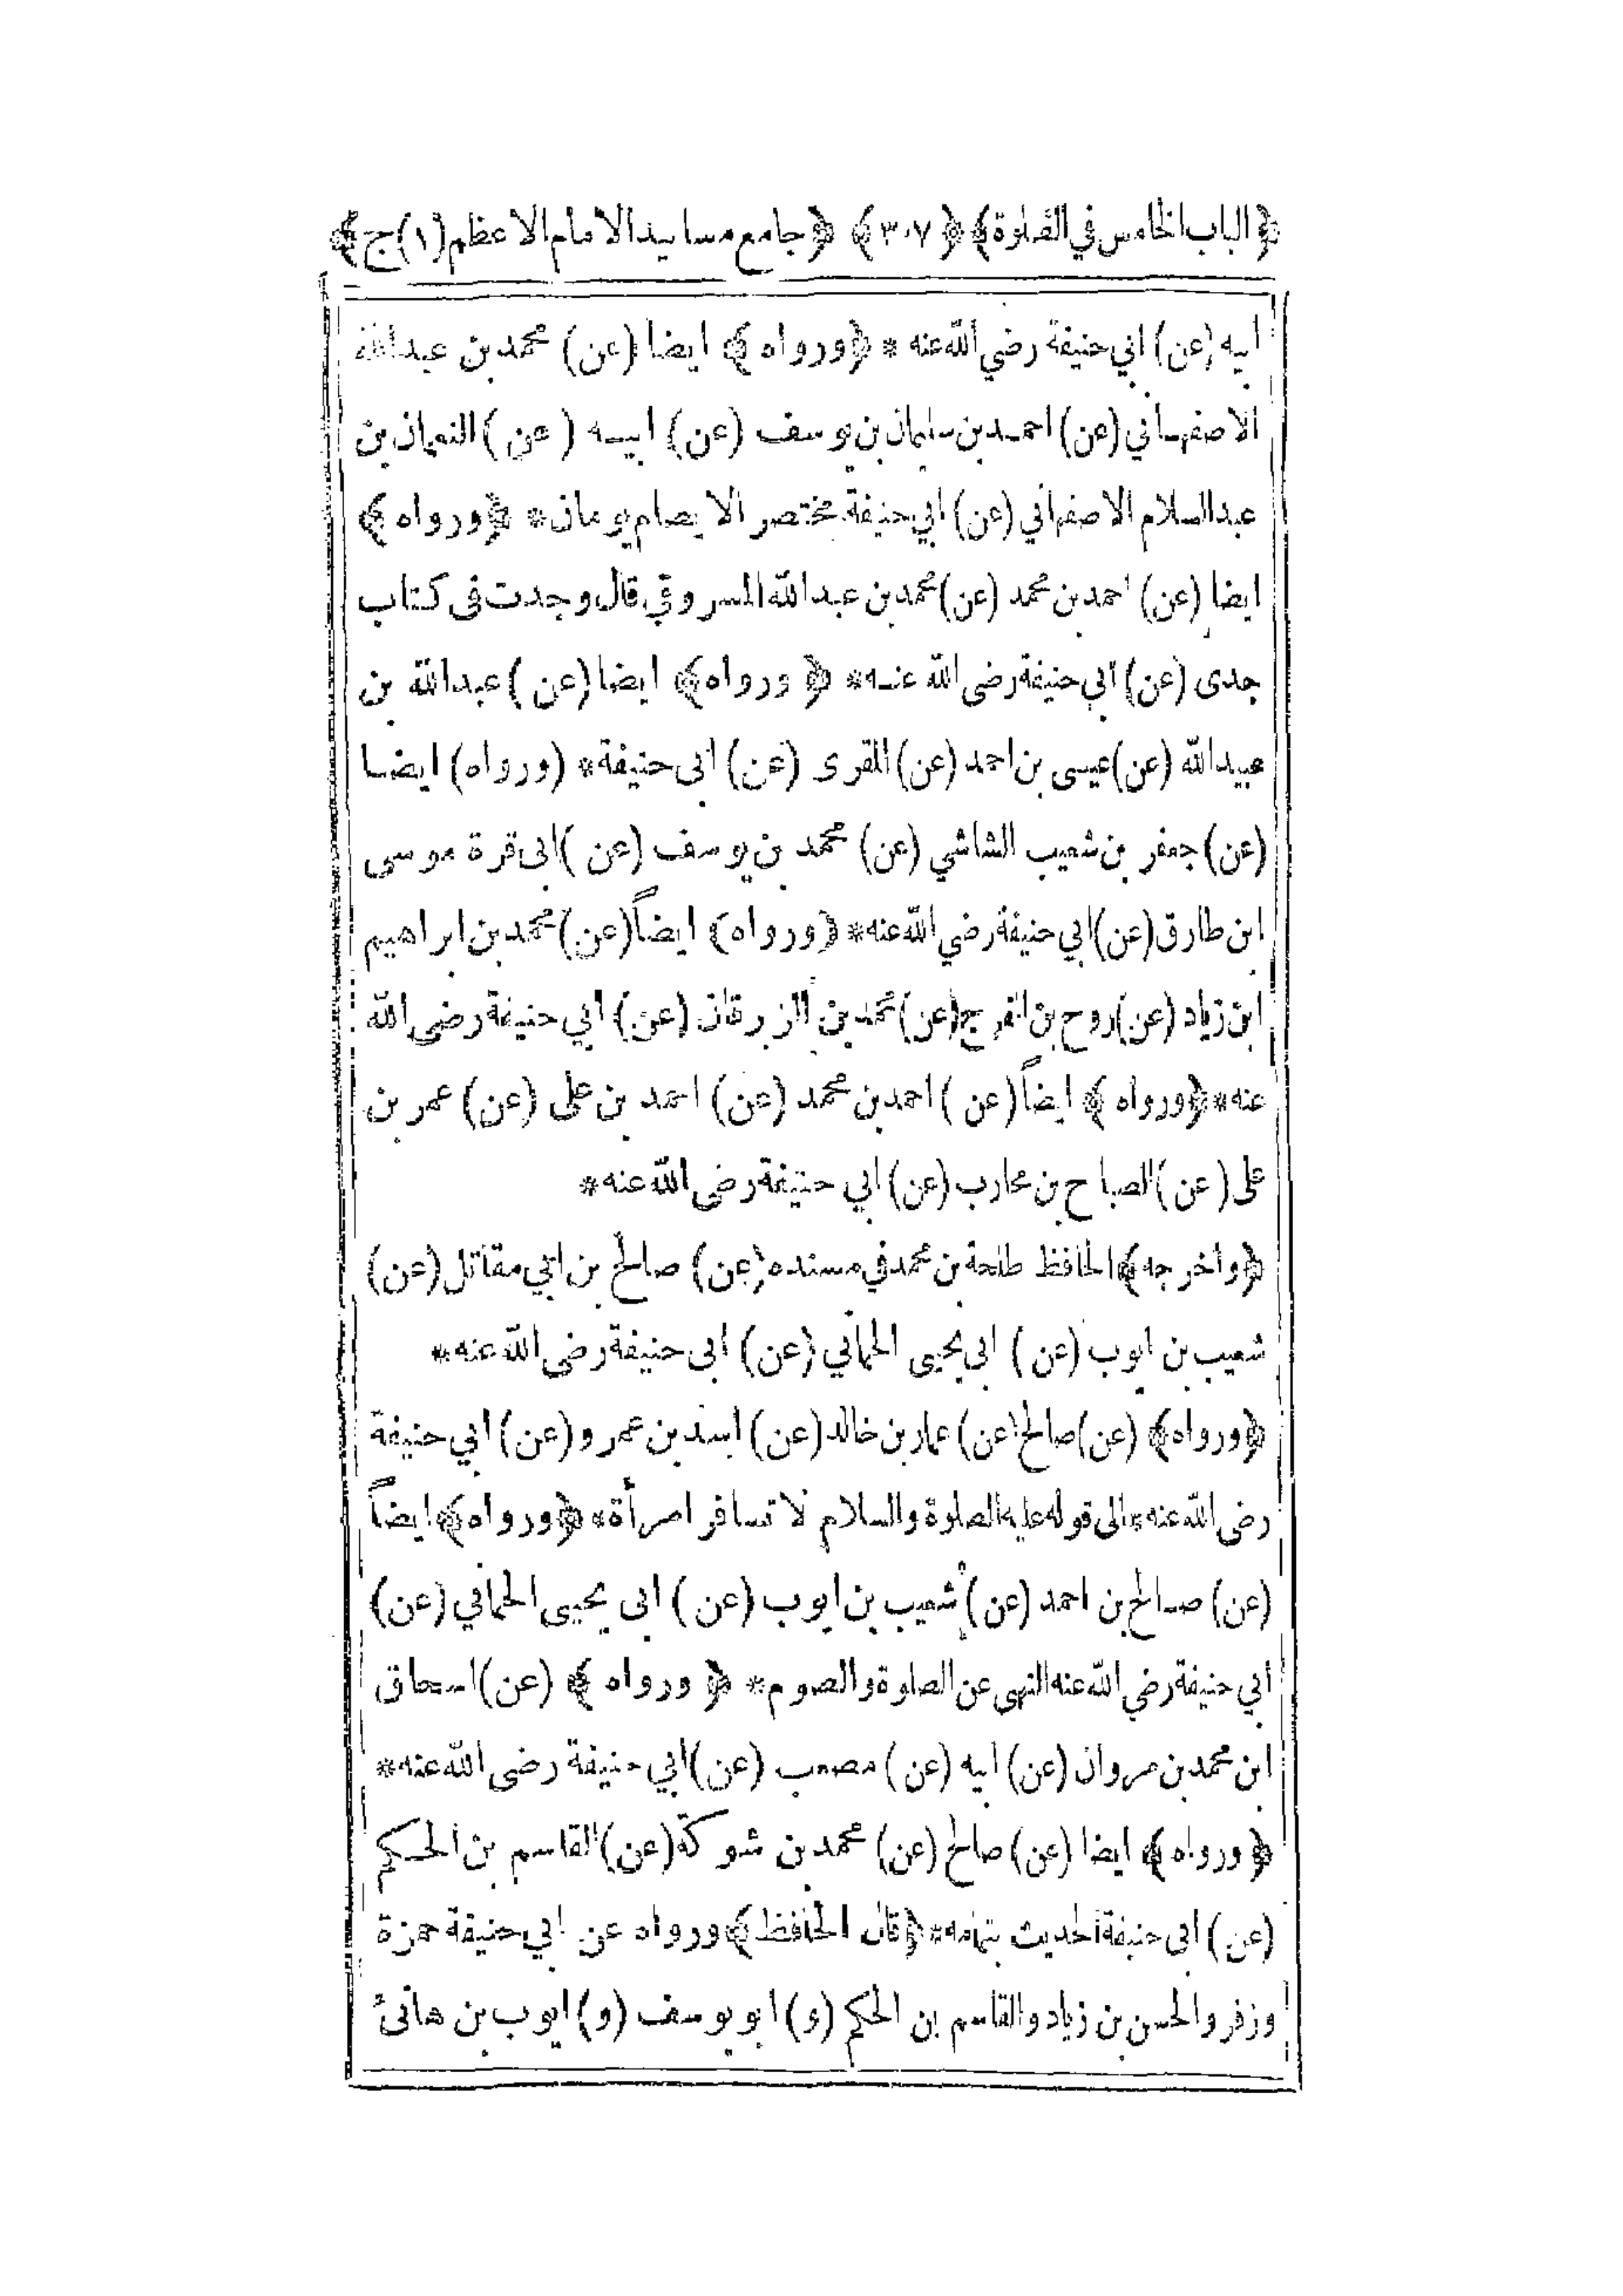 ﴿الباب الخامس في الصلوة﴾ ﴿٣٠٧﴾ ﴿جامع مسانيد الامام الاعظم (١) ج﴾
ابيه (عن) ابي حنيفة رضي الله عنه * ﴿ورواه﴾ ايضا (عن) محمد بن عبدالله
الاصفهاني (عن) احمد بن سليمان بن يوسف (عن) ابيه (عن) النعمان بن
عبدالسلام الاصفهاني (عن) ابي حنيفة مختصر الا يصام يومان * ﴿ورواه﴾
ايضا (عن) احمد بن محمد (عن) محمد بن عبدالله المسروقي قال وجدت في كتاب
جدى (عن) ابي حنيفة رضى الله عنه * ﴿ورواه﴾ ايضا (عن) عبدالله بن
عبيدالله (عن) عيسى بن احمد (عن) المقرى (عن) ابى حنيفة * (ورواه) ايضا
(عن) جعفر بن شعيب الشاشي (عن) محمد بن يوسف (عن) ابى قرة موسى
ابن طارق (عن) ابي حنيفة رضي الله عنه * ﴿ورواه﴾ ايضاً (عن) محمد بن ابراهيم
ابن زياد (عن) روح بن الفرج (عن) محمد بن الزبرقان (عن) ابي حنيفة رضى الله
عنه * ﴿ورواه﴾ ايضاً (عن) احمد بن محمد (عن) احمد بن على (عن) عمر بن
على (عن) الصباح بن محارب (عن) ابي حنيفة رضى الله عنه *
﴿واخرجه﴾ الحافظ طلحة بن محمد في مسنده (عن) صالح بن ابي مقاتل (عن)
شعيب بن ايوب (عن) ابى يحيى الحماني (عن) ابى حنيفة رضى الله عنه *
﴿ورواه﴾ (عن) صالح (عن) عمار بن خالد (عن) اسد بن عمرو (عن) ابي حنيفة
رضى الله عنه * الى قوله عليه الصلوة والسلام لا تسافر امرأة * ﴿ورواه﴾ ايضاً
(عن) صالح بن احمد (عن) شعيب بن ايوب (عن) ابى يحيى الحماني (عن)
ابي حنيفة رضي الله عنه النهى عن الصلوة والصوم * ﴿ورواه﴾ (عن) اسحاق
ابن محمد بن مروان (عن) ابيه (عن) مصعب (عن) ابي حنيفة رضى الله عنه *
﴿ورواه﴾ ايضا (عن) صالح (عن) محمد بن شوكة (عن) القاسم بن الحكم
(عن) ابى حنيفة الحديث بتمامه * ﴿قال الحافظ﴾ ورواه عن ابي حنيفة حمزة
وزفر والحسن بن زياد والقاسم بن الحكم (و) ابو يوسف (و) ايوب بن هانئ